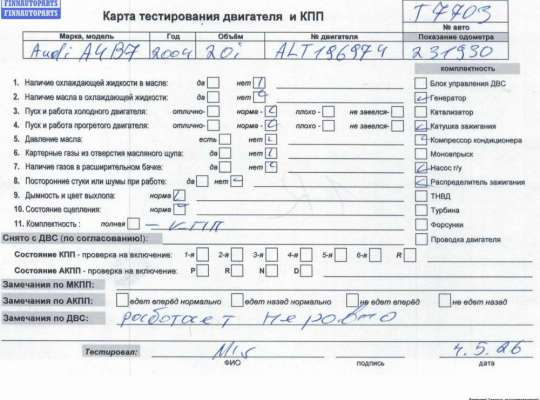 FINNAUTOPARTS
FINNAUTOPARTS
Карта тестирования двигателя и КПП
T 7703
№ авто
Марка, модель Год Объём № двигателя Показание одометра
Audi A4B7 2004 20i ALT196974 231930
комплектность
1. Наличие охлаждающей жидкости в масле: да нет
2. Наличие масла в охлаждающей жидкости: да нет
3. Пуск и работа холодного двигателя: отлично- норма - плохо - не завелся-
4. Пуск и работа прогретого двигателя: отлично- норма - плохо - не завелся-
5. Давление масла: есть нет
6. Картерные газы из отверстия масляного щупа: да нет
7. Наличие газов в расширительном бачке: да нет
8. Посторонние стуки или шумы при работе: да нет
9. Дымность и цвет выхлопа: норма
10. Состояние сцепления: норма
11. Комплектность : полная – КПП
Блок управления ДВС
Генератор
Катализатор
Катушка зажигания
Компрессор кондиционера
Моновпрыск
Насос г/у
Распределитель зажигания
ТНВД
Турбина
Форсунки
Проводка двигателя
Снято с ДВС (по согласованию):
Состояние КПП - проверка на включение: 1-я 2-я 3-я 4-я 5-я 6-я R
Состояние АКПП - проверка на включение: P R N D
Замечания по МКПП:
Замечания по АКПП: едет вперёд нормально едет назад нормально не едет вперёд не едет назад
Замечания по ДВС: работает неровно
Тестировал: 4.5.26
ФИО подпись дата